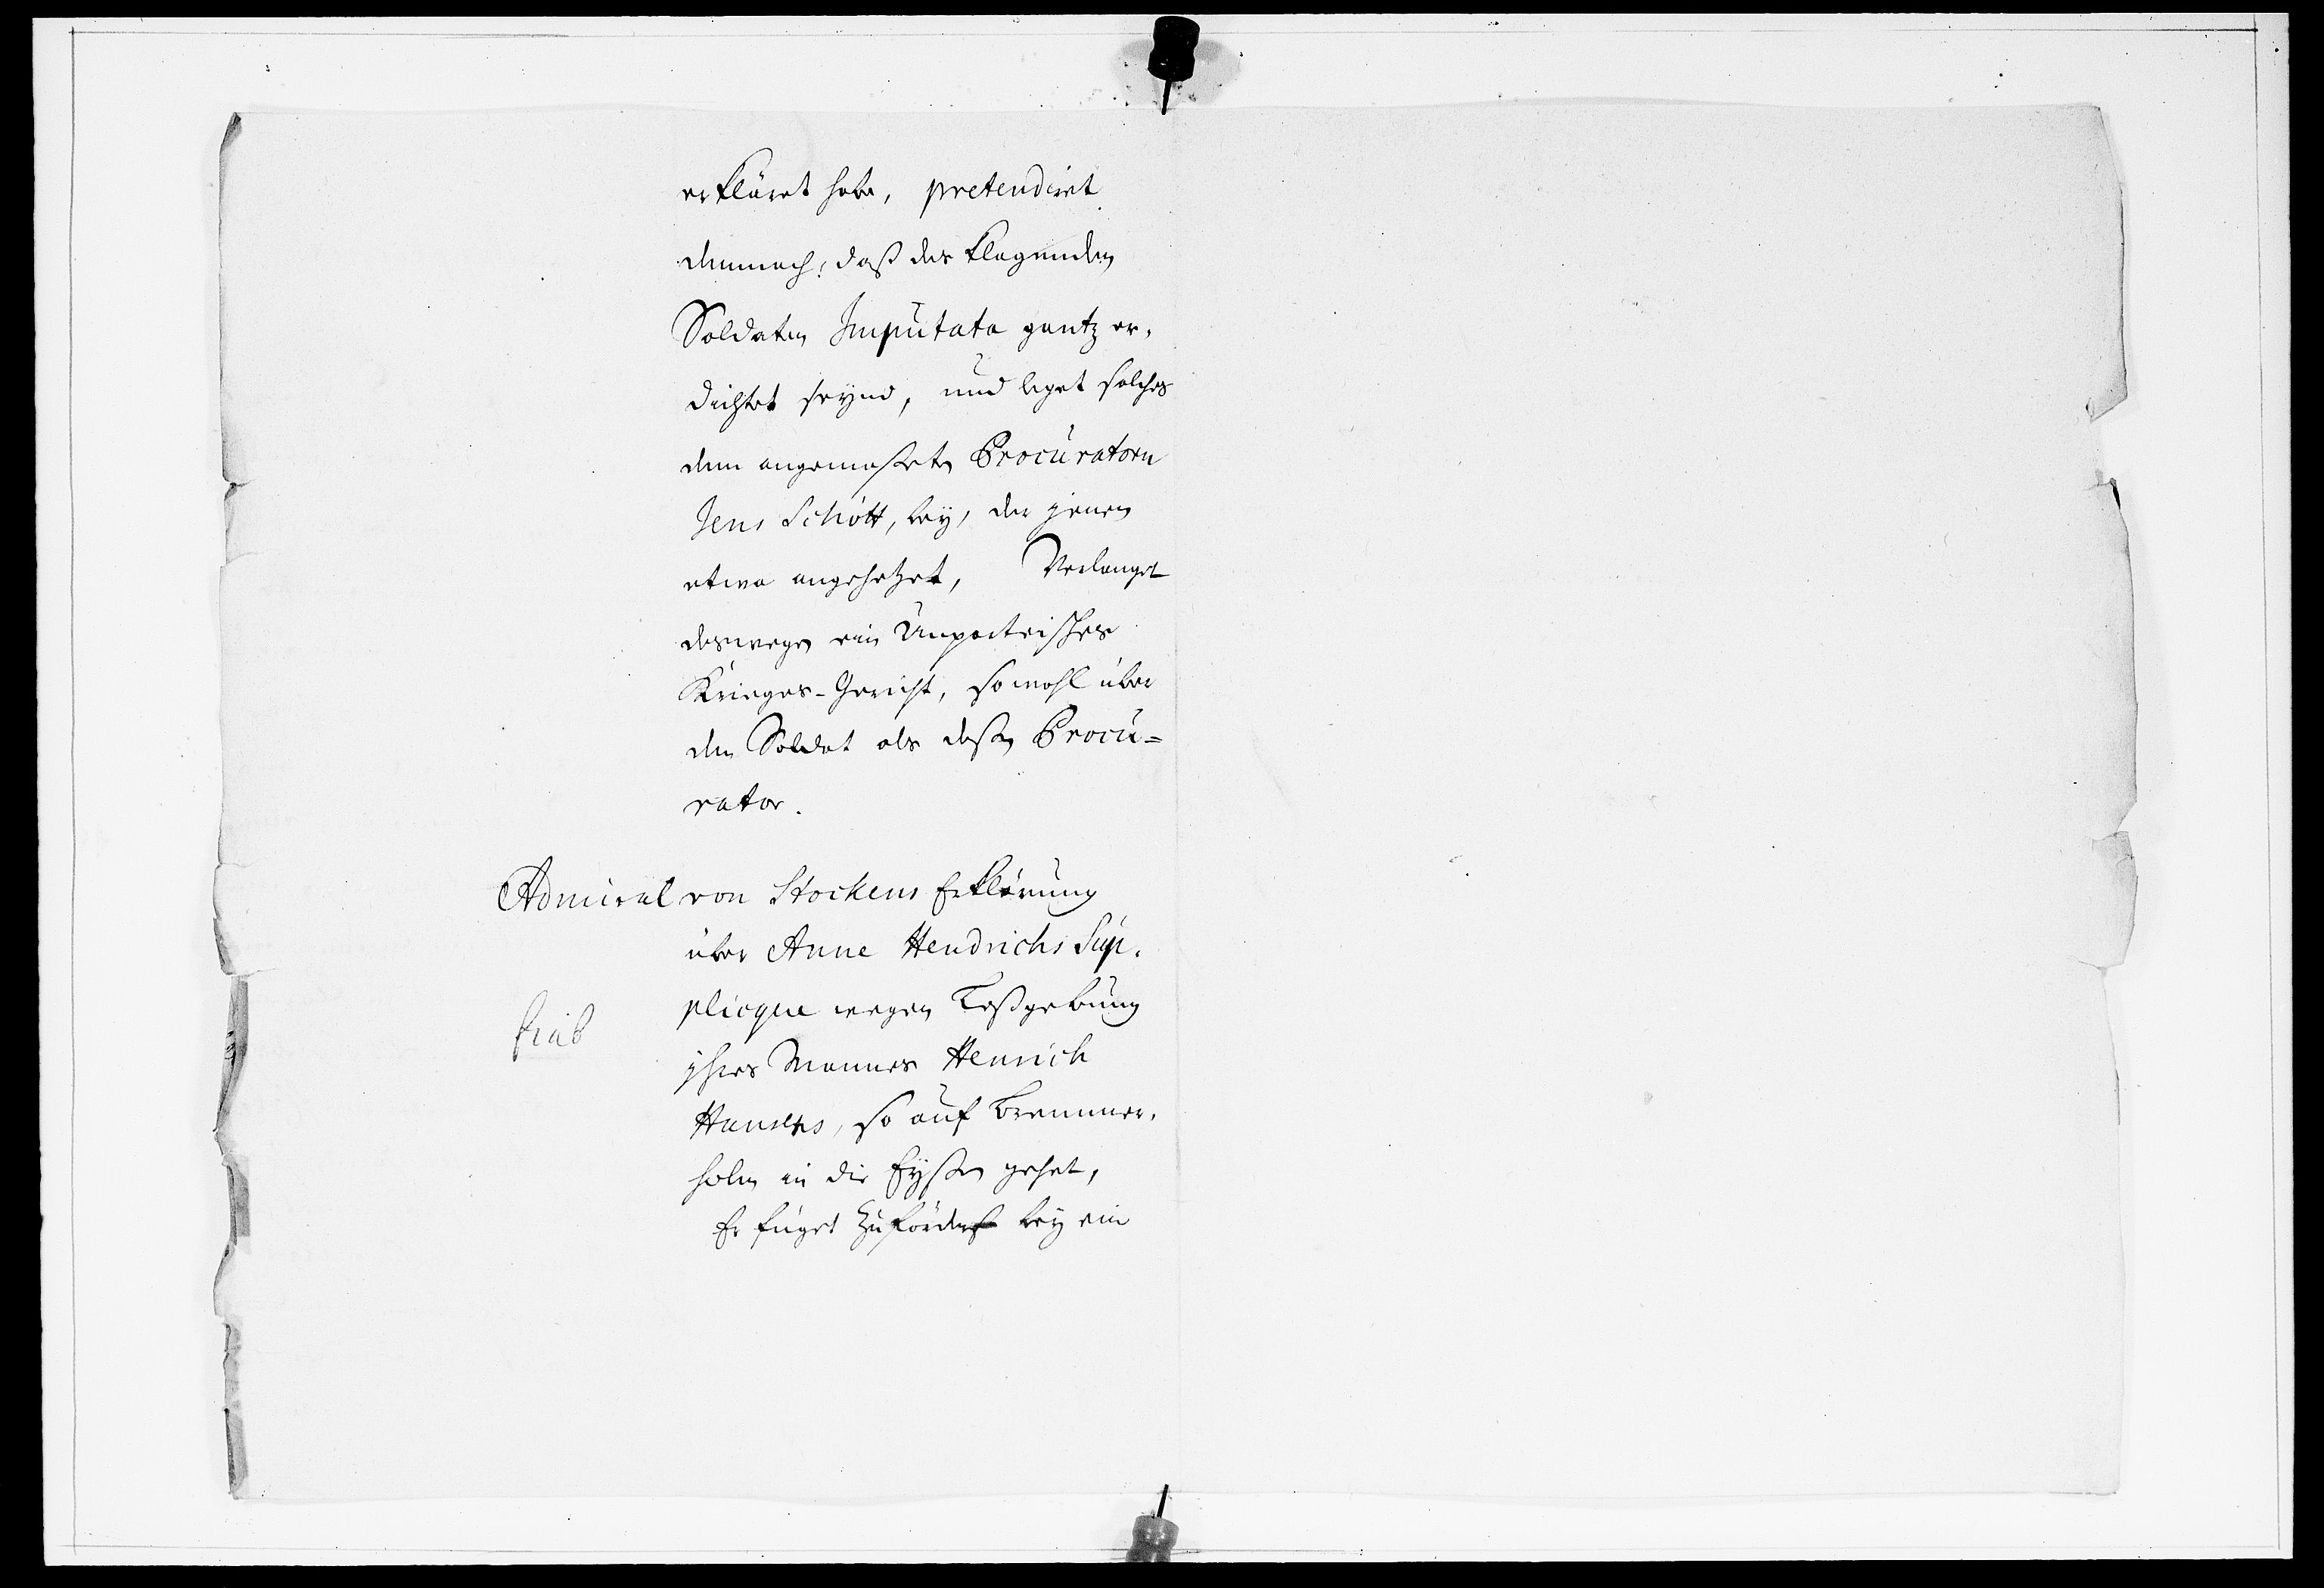 erkläret habe, pretendiret
demnach, daß des klagenden
Soldaten Imputata gantz er-
dichtet seynd, und leget solches
dem angemaßeten Procuratorn
Jens Schött, bey, der jenen
etwa angehetzet, Verlanget
deswegen ein Unparteisches
Krieges-Gericht, so wohl über
den Soldat als deßen Procu=
rator.
Admiral von Stockens Erklärung
über Anne Hendrichs Sup-
plicque wegen Loßgebung
ihres Mannes Henrich
Hansens, so auf Bremmer-
holm in die Eyßen gehet,
Er füget zuforderst bey ein